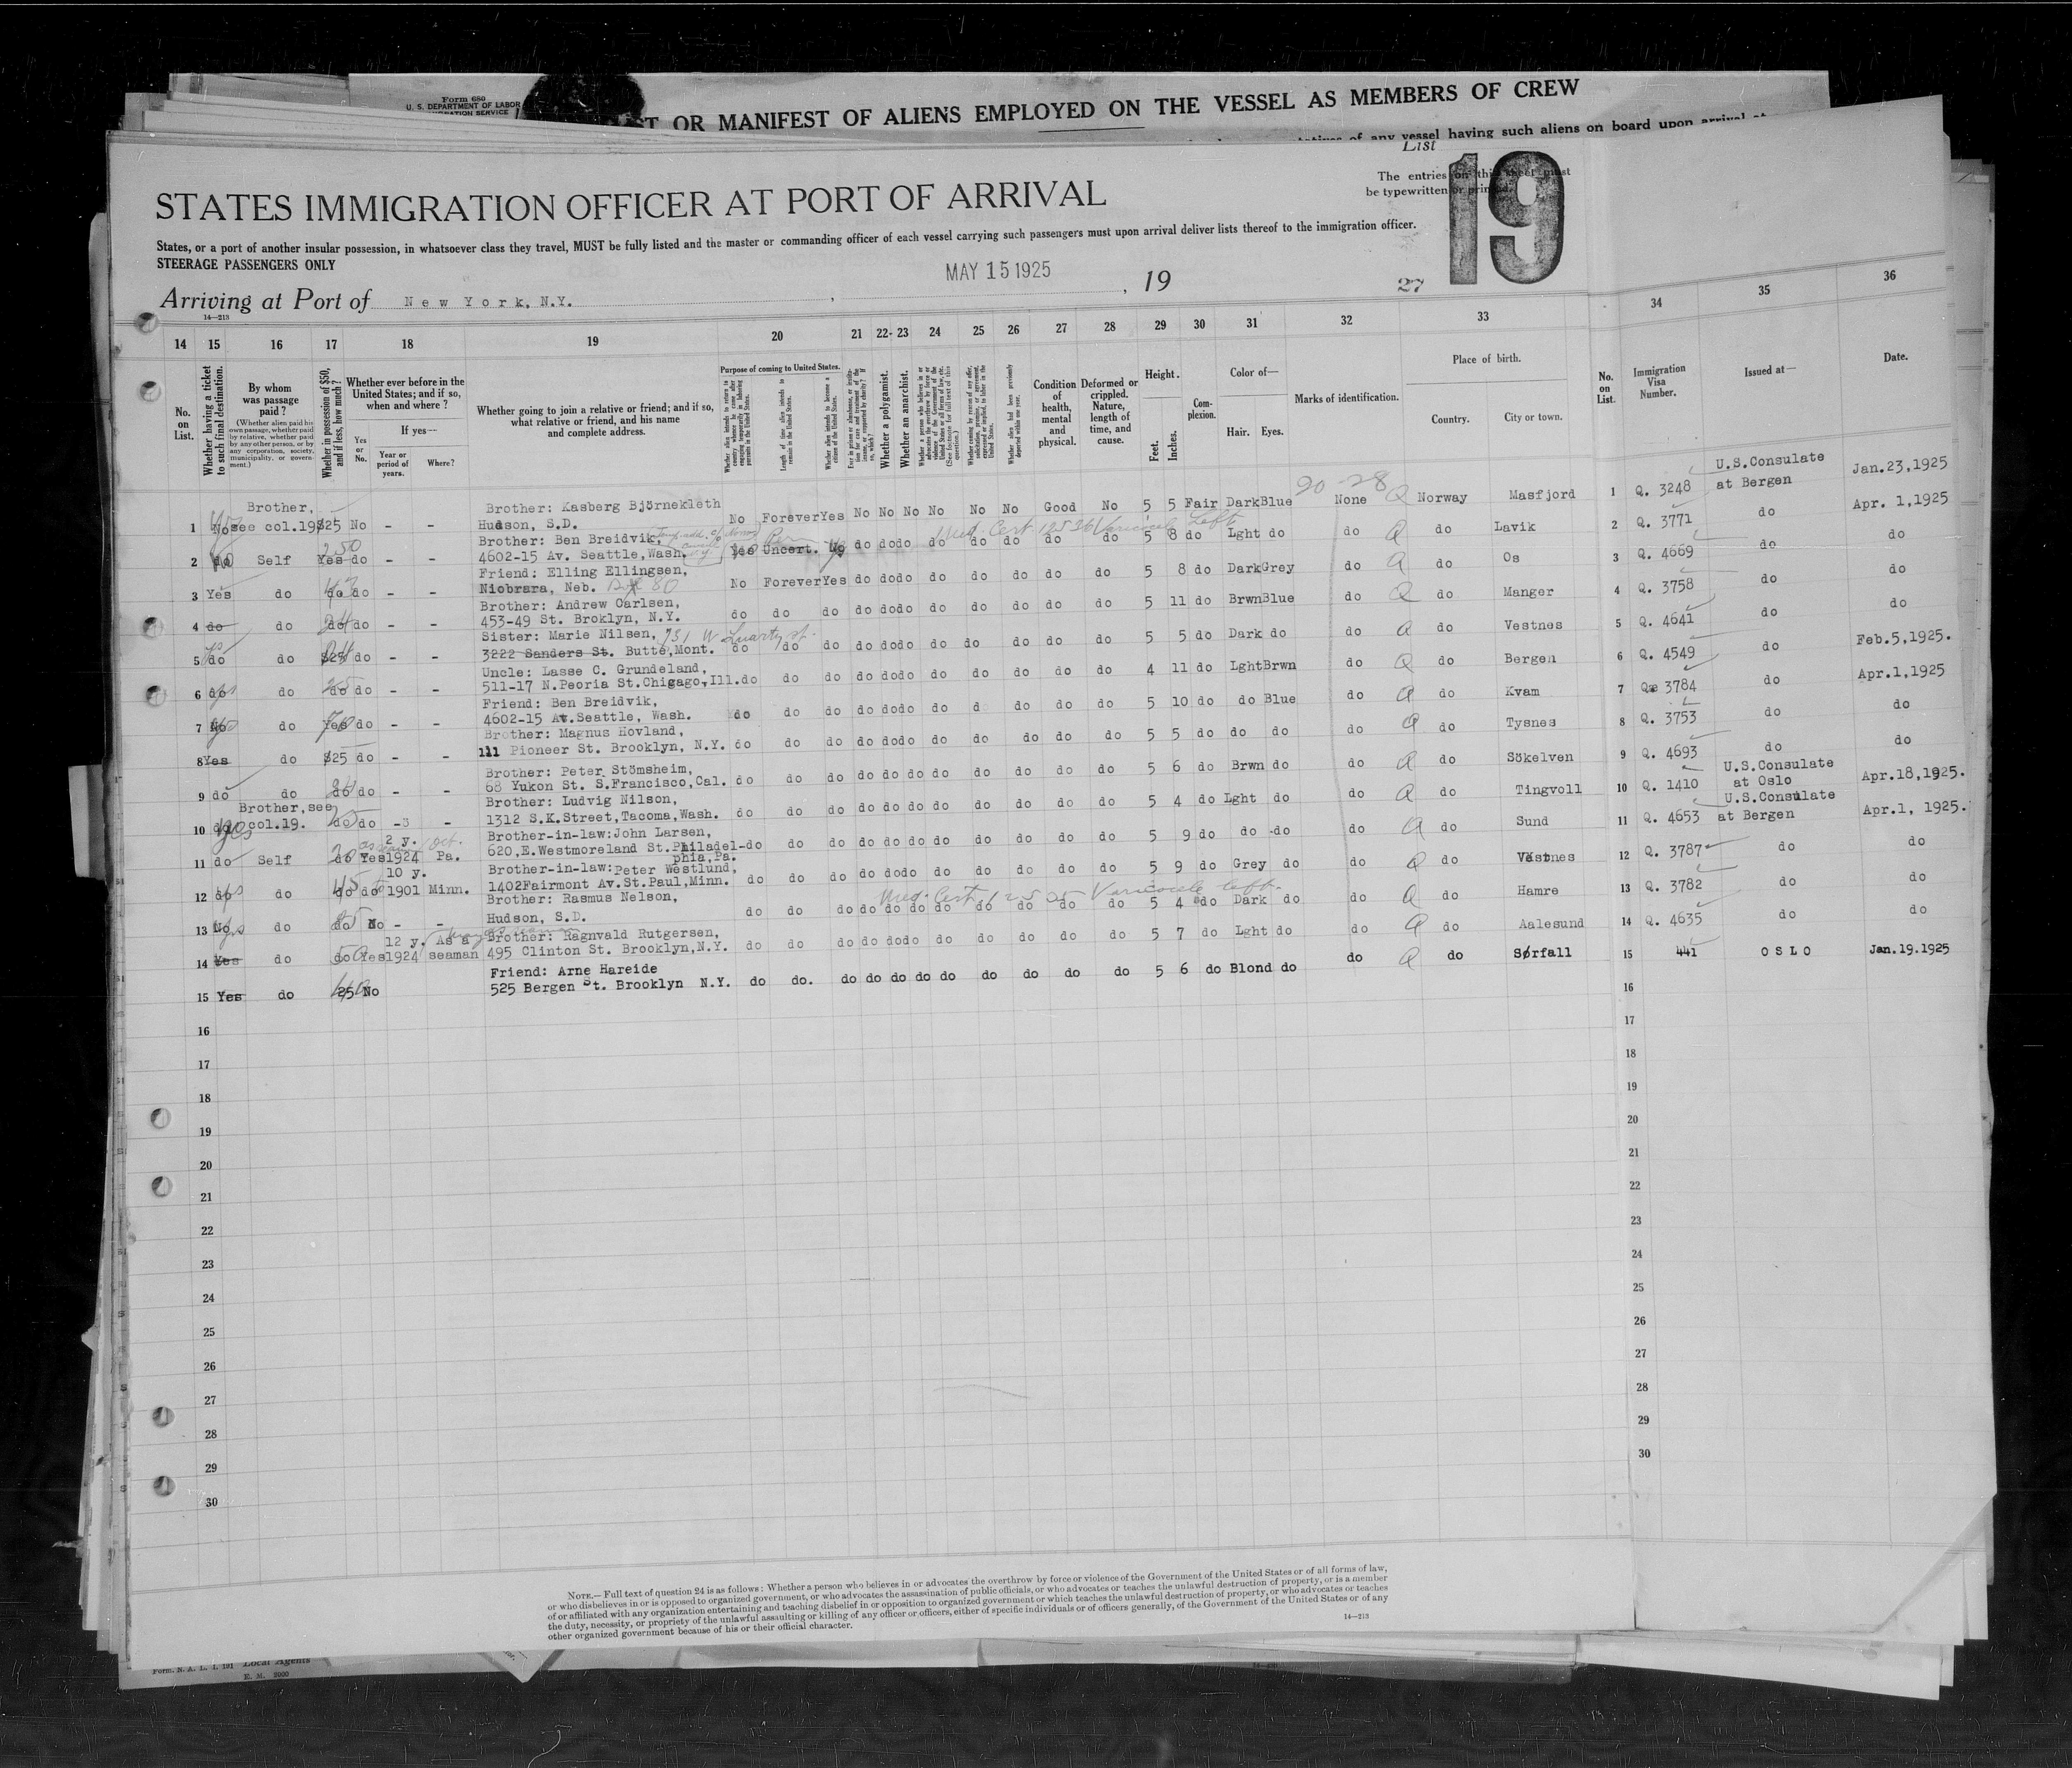 Form 680
U. S. DEPARTMENT OF LABOR
OR MANIFEST OF ALIENS EMPLOYED ON THE VESSEL AS MEMBERS OF CREW
of any vessel having such aliens on board upon arrival at
List
19
The entries on this sheet must
be typewritten or printed.
STATES IMMIGRATION OFFICER AT PORT OF ARRIVAL
States, or a port of another insular possession, in whatsoever class they travel, MUST be fully listed and the master or commanding officer of each vessel carrying such passengers must upon arrival deliver lists thereof to the immigration officer.
STEERAGE PASSENGERS ONLY
Arriving at Port of New York, N.Y. , MAY 15 1925 , 19 27
14—213
14 15 16 17 18 19 20 21 22- 23 24 25 26 27 28 29 30 31 32 33 34 35 36
No. on List.
Whether having a ticket to such final destination.
By whom was passage paid?
(Whether alien paid his own passage, whether paid by relative, whether paid by any other person, or by any corporation, society, municipality, or government.)
Whether in possession of $50, and if less, how much?
Whether ever before in the United States; and if so, when and where?
If yes—
Yes or No.
Year or period of years.
Where?
Whether going to join a relative or friend; and if so, what relative or friend, and his name and complete address.
Purpose of coming to United States.
Length of time alien intends to remain in the United States.
Whether a polygamist.
Whether an anarchist.
Condition of health, mental and physical.
Deformed or crippled. Nature, length of time, and cause.
Height.
Feet. Inches.
Complexion.
Color of—
Hair. Eyes.
Marks of identification.
Place of birth.
Country. City or town.
No. on List.
Immigration Visa Number.
Issued at—
Date.
20 - 28
1 No Brother, see col.19 $25 No - - Brother: Kasberg Björnekleth Hudson, S.D. No Forever Yes No No No No No No Good No 5 5 Fair Dark Blue None Norway Masfjord 1 Q. 3248 U.S.Consulate at Bergen Jan.23,1925
Med. Cert. 12526 Varicocele Left
2 do Self Yes do - - Brother: Ben Breidvik, 4602-15 Av. Seattle,Wash. Yes Uncert. No do do do do do do do do 5 8 do Lght do do do Lavik 2 Q. 3771 do Apr. 1,1925
3 Yes do do do - - Friend: Elling Ellingsen, Niobrara, Neb. Bx 80 No Forever Yes do do do do do do do do 5 8 do Dark Grey do do Os 3 Q. 4669 do do
4 do do do do - - Brother: Andrew Carlsen, 453-49 St. Broklyn, N.Y. do do do do do do do do do do do 5 11 do Brwn Blue do do Manger 4 Q. 3758 do do
5 do do $25 do - - Sister: Marie Nilsen, 731 W Quartz st. 3222 Sanders St. Butte,Mont. do do do do do do do do do do do 5 5 do Dark do do do Vestnes 5 Q. 4641 do do
6 do do do do - - Uncle: Lasse C. Grundeland, 511-17 N.Peoria St.Chigago,Ill. do do do do do do do do do do do 4 11 do Lght Brwn do do Bergen 6 Q. 4549 do Feb.5,1925.
7 No do Yes do - - Friend: Ben Breidvik, 4602-15 Av.Seattle, Wash. do do do do do do do d do do do 5 10 do do Blue do do Kvam 7 Q. 3784 do Apr.1,1925
8 Yes do $25 do - - Brother: Magnus Hovland, 111 Pioneer St. Brooklyn, N.Y. do do do do do do do do do do do 5 5 do do do do do Tysnes 8 Q. 3753 do do
9 do do do do - - Brother: Peter Stömsheim, 68 Yukon St. S.Francisco,Cal. do do do do do do do do do do do 5 6 do Brwn do do do Sökelven 9 Q. 4693 do do
10 do Brother,see col.19. do do - - Brother: Ludvig Nilson, 1312 S.K.Street,Tacoma,Wash. do do do do do do do do do do do 5 4 do Lght do do do Tingvoll 10 Q. 1410 U.S.Consulate at Oslo Apr.18,1925.
11 do Self do Yes 2 y. 1924 Pa. Brother-in-law:John Larsen, 620,E.Westmoreland St.Philadelphia,Pa. do do do do do do do do do do do 5 9 do do do do do Sund 11 Q. 4653 U.S.Consulate at Bergen Apr.1, 1925.
12 do do do do 10 y. 1901 Minn. Brother-in-law:Peter Westlund, 1402Fairmont Av.St.Paul,Minn. do do do do do do do do do do do 5 9 do Grey do do do Vestnes 12 Q. 3787 do do
Med. Cert 12525 Varicocele left
13 No do do No - - Brother: Rasmus Nelson, Hudson, S.D. do do do do do do do do do do do 5 4 do Dark do do do Hamre 13 Q. 3782 do do
14 Yes do do Yes 12 y. 1924 As a seaman Brother: Ragnvald Rutgersen, 495 Clinton St. Brooklyn,N.Y. do do do do do do do do do do do 5 7 do Lght do do do Aalesund 14 Q. 4635 do do
15 Yes do 25 No Friend: Arne Hareide 525 Bergen St. Brooklyn N.Y. do do. do do do do do do do do 5 6 do Blond do do do Sørfall 15 441 OSLO Jan.19.1925
16 16
17 17
18 18
19 19
20 20
21 21
22 22
23 23
24 24
25 25
26 26
27 27
28 28
29 29
30 30
NOTE.—Full text of question 24 is as follows: Whether a person who believes in or advocates the overthrow by force or violence of the Government of the United States or of all forms of law,
or who disbelieves in or is opposed to organized government, or who advocates the assassination of public officials, or who advocates or teaches the unlawful destruction of property, or is a member
of or affiliated with any organization entertaining and teaching disbelief in or opposition to organized government or which teaches the unlawful destruction of property, or who advocates or teaches
the duty, necessity, or propriety of the unlawful assaulting or killing of any officer or officers, either of specific individuals or of officers generally, of the Government of the United States or of any
other organized government because of his or their official character.
14—213
Form. N. A. L. I. 191 Local Agents
E. M. 2000